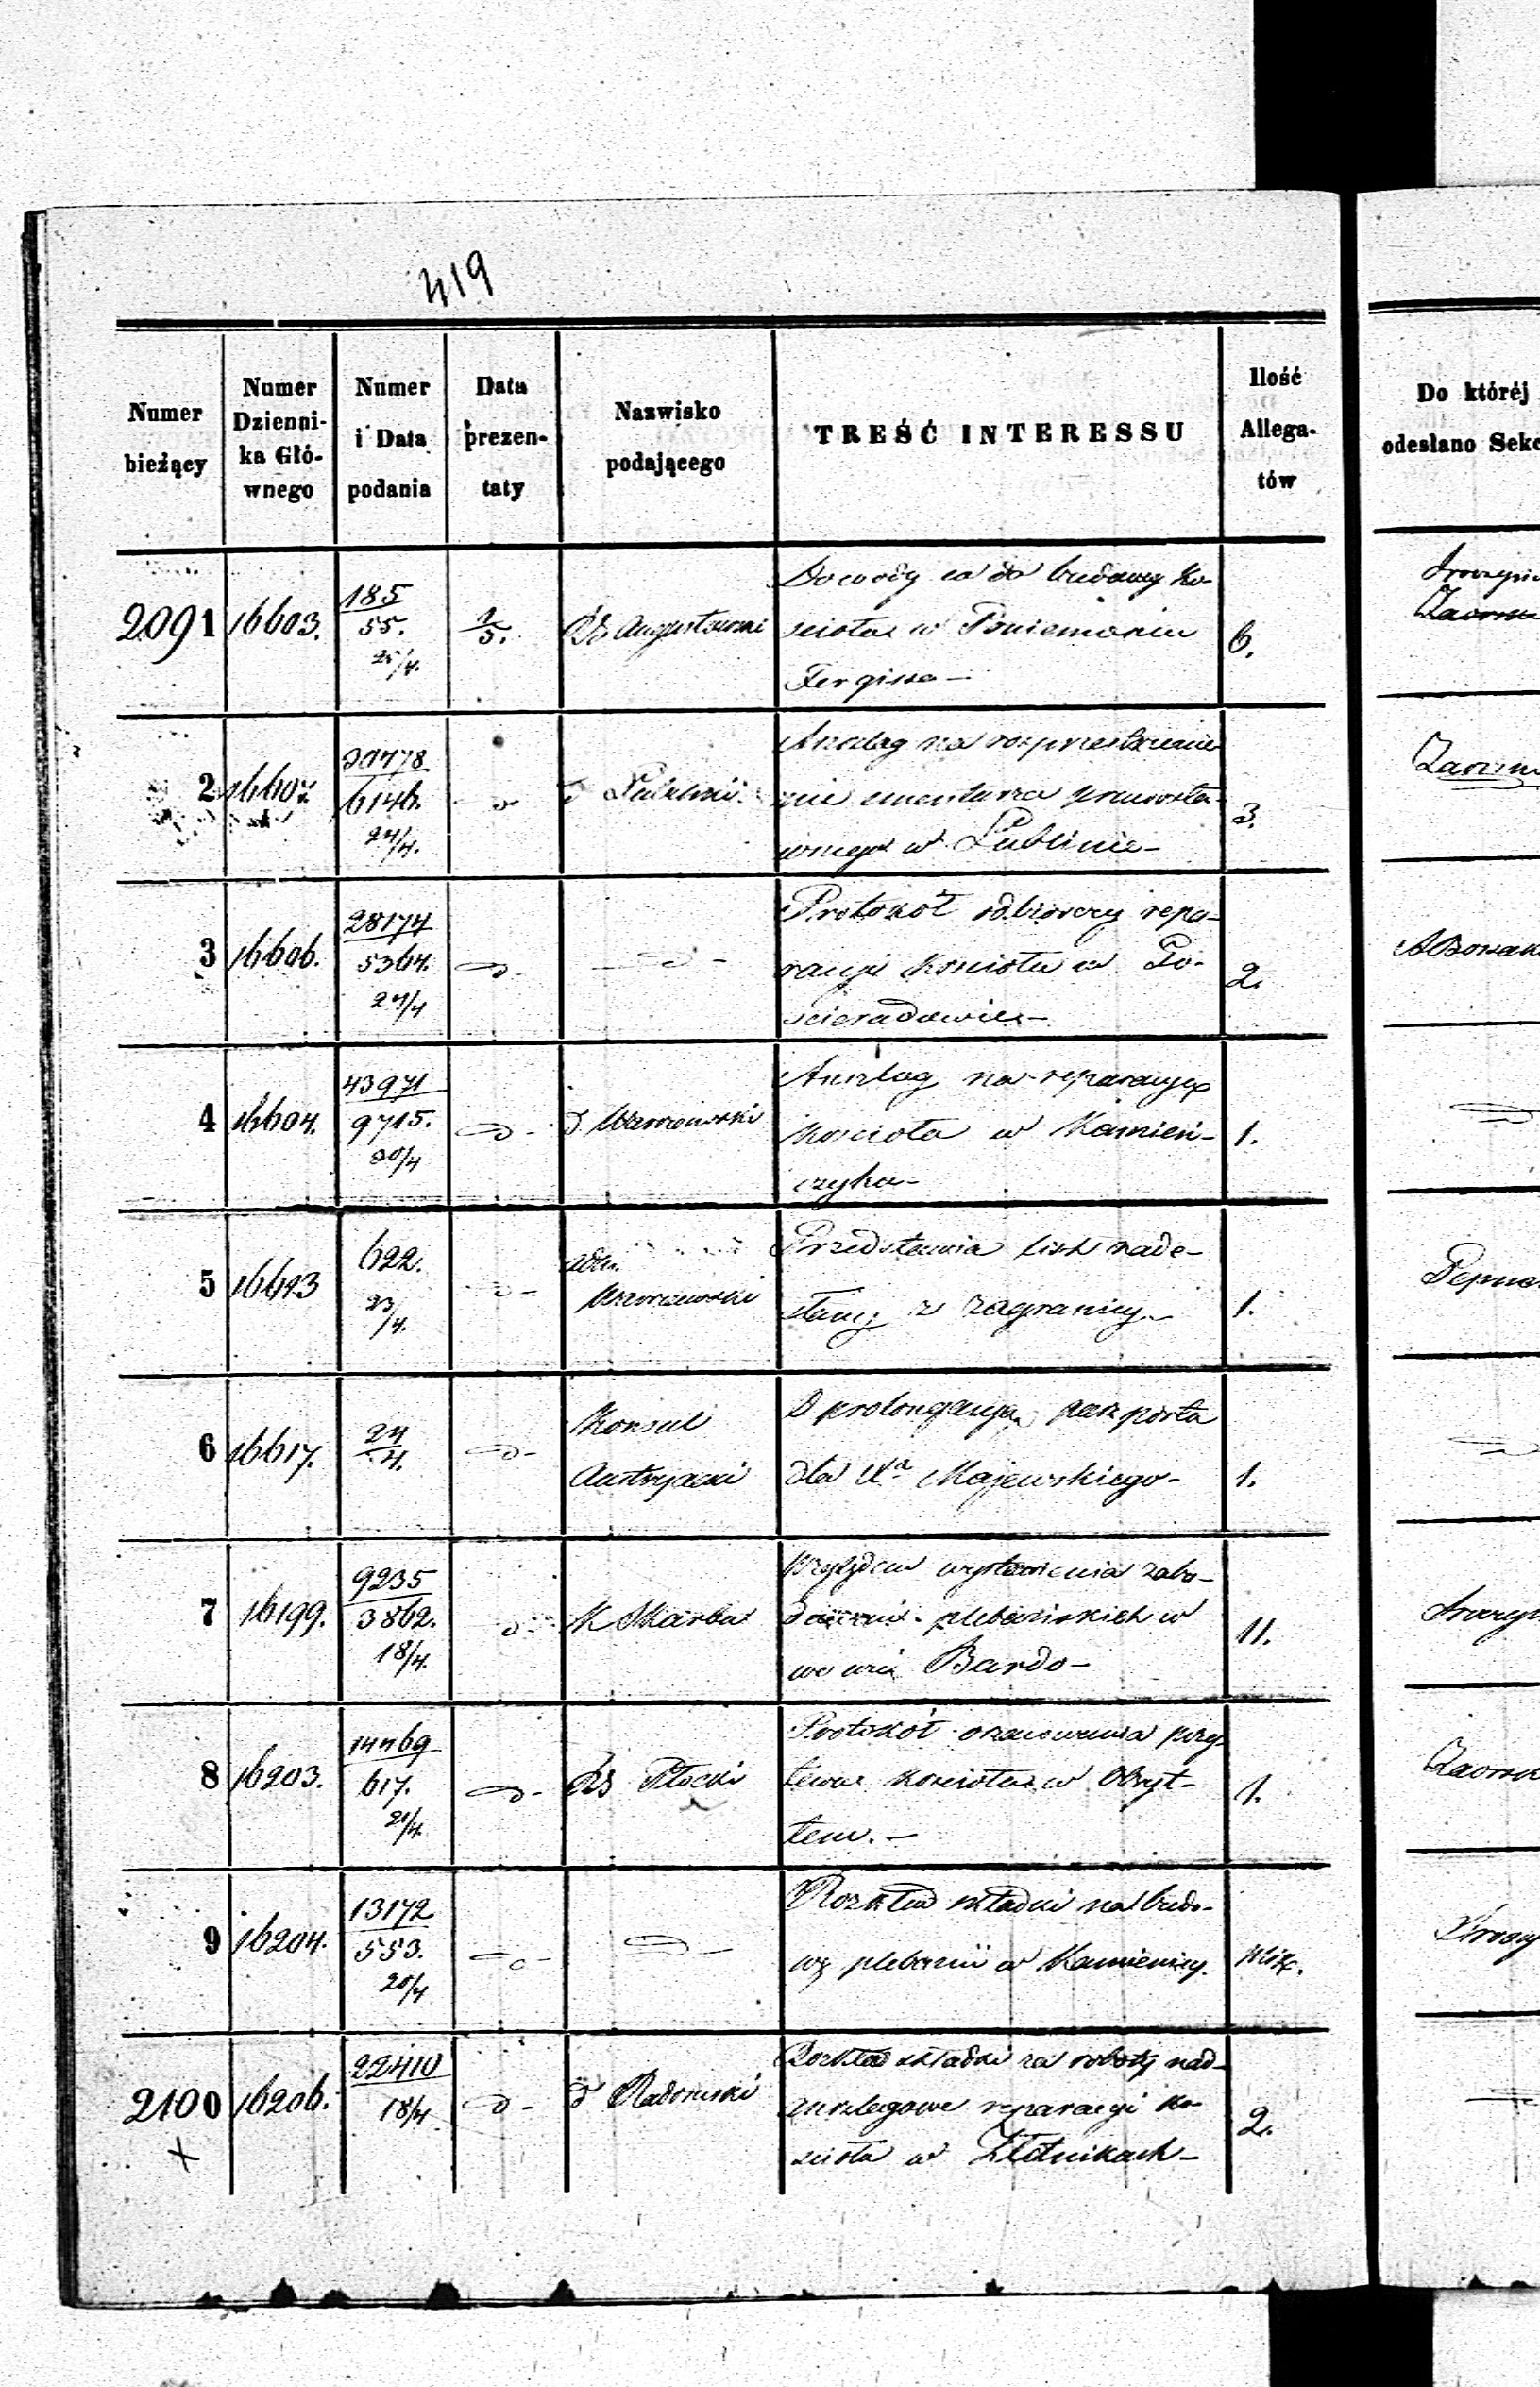 419
Numer bieżący
Numer Dzienni-ka Głó-wnego
Numer i Data podania
Data prezen-taty
Nazwisko podającego
TREŚĆ INTERESSU
Ilość Allega-tów
Do któréj odesłano Sekc
2091 16603. 185 / 55. 25/4. 1/5. Rz Augustowski
Dowody co do budowy Ko-
ścioła w Poniemoniu
Fergissa - 6.
2 16607. 6146. 24/4. -o-
Anszlag na rozprzestrzenie-
nie cmentarza prawosła-
wnego w Lublinie - 3.
3 16606. 28174 / 5364. 24/4 -o- -o-
Protokół odbiorczy repa-
racyi kościoła w Po-
ścieradowicu - 2.
4 16604. 43971 / 9715. 30/4 -o- Warszawski
Anszlag na reparacyę
kościoła w Kamień-
czyku - 1.
5 16613 622. 23/4. -o- Adm. Warszawski
Przedstawia list nade-
słany z zagranicy - 1.
6 16617. 24/4. -o- Konsul Austryacki
O prolongacyę paszportu
dla Xa Majewskiego - 1.
7 16199. 9235 / 3862. 18/4. -o- K Skarbu
Względem wystawienia zabu-
dowań plebańskich w
we wsi Bardo - 11.
8 16203. 14469 / 617. 21/4. -o- Rz Płocki
Protokół oszacowania przy
kościoła w Obryt-
tem. - 1.
9 16204. 13172 / 553. 20/4 -o- -o-
Rozkład składki na budo-
wę plebanii w Kamienicy.
2100 16206. 22410 / 18/4 -o- Radomski
Rozkład składki za roboty nad-
anszlagowe reparacyi ko-
ścioła w Złotnikach - 2.